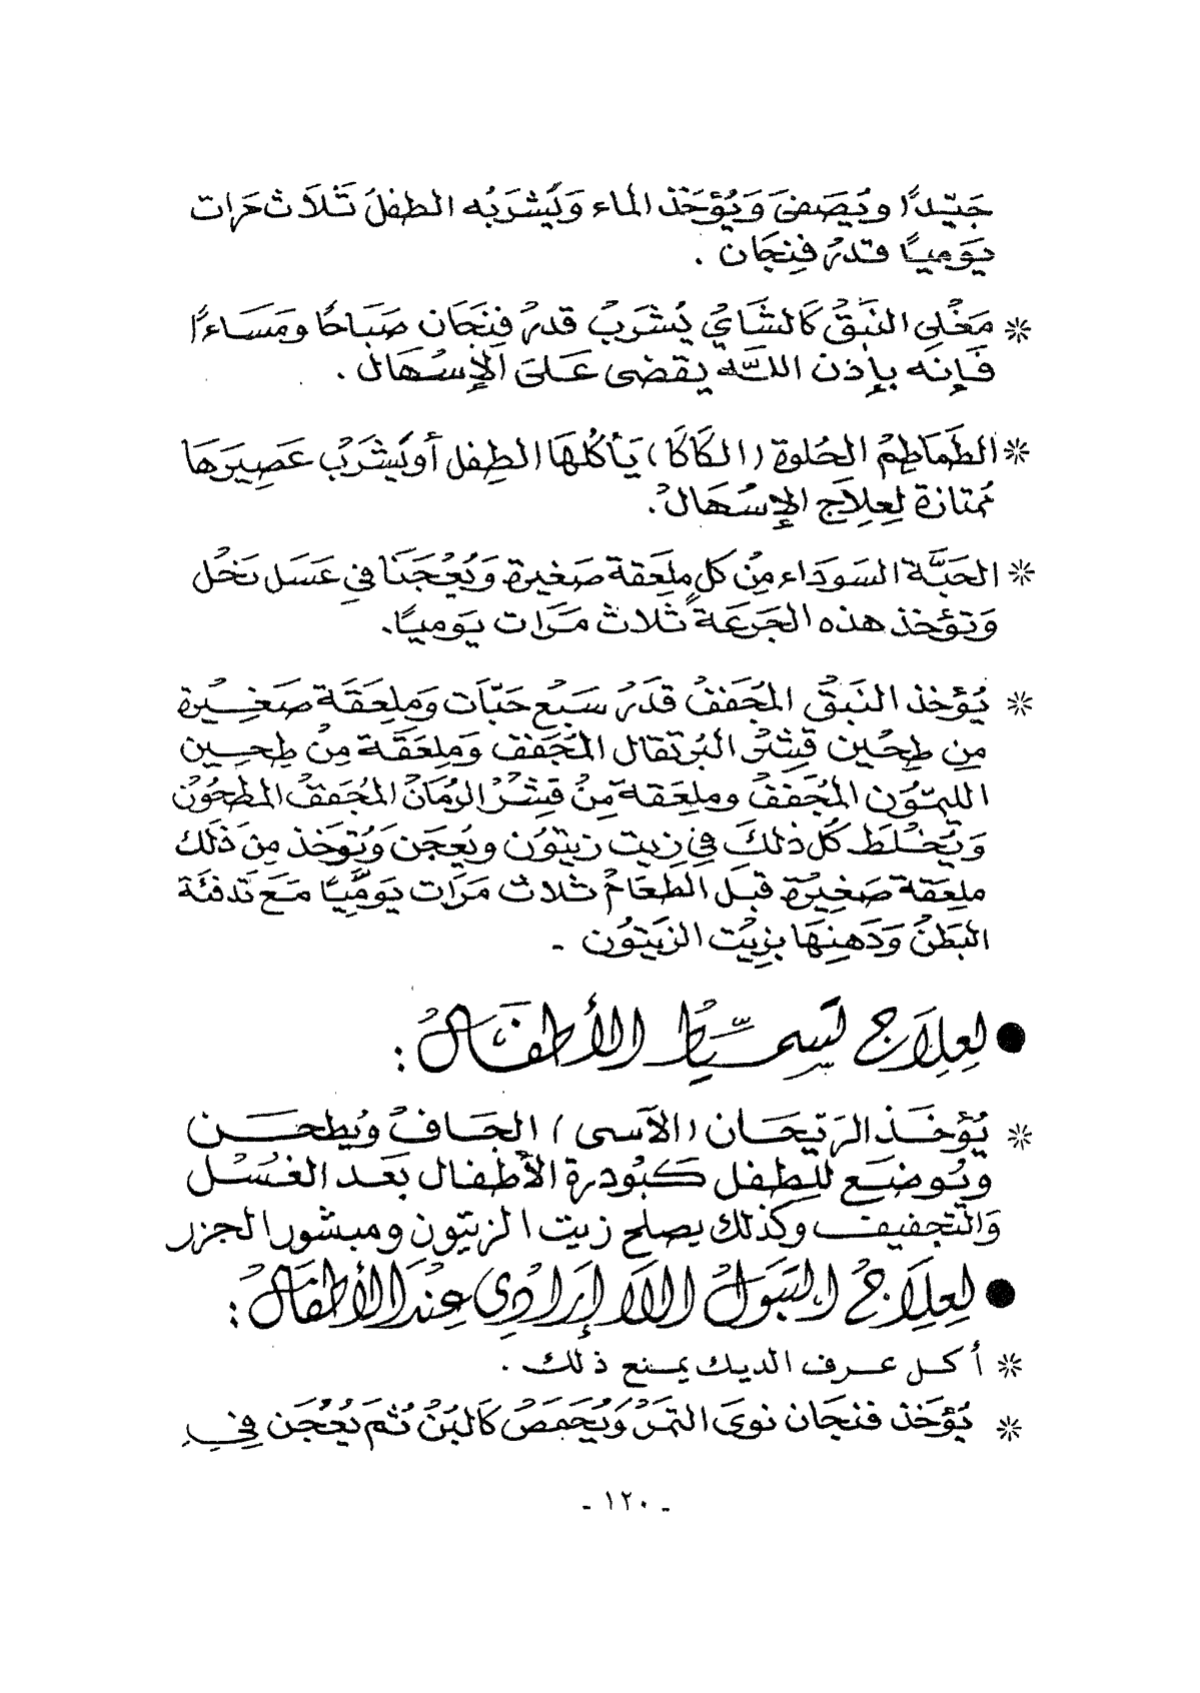 جَيّدًا ويُصَفىَ وَيُؤخَذ الماء وَيُشرَبُه الطفل ثَلاَث مَرات
يَوميًا قدرُ فِنجَان .
* مَغْلى النَبَقْ كَالشَّايْ يُشرَبْ قدرُ فِنجَان صَبَاحًا ومَسَاءًا
فَإِنه بإذن اللَّه يقضى عَلىَ الإسْهَال .
* الطَمَاطِمْ الحُلوة (الكَاكَا) يَأكلهَا الطِفل أو يَشرَبْ عَصِيرَهَا
مُمتازة لِعِلاَج الإسْهَالْ .
* الحَبَّة السَودَاء مِنْ كَلٍ مِلعَقة صَغيرة وَيُعْجَنَا في عَسَل نَحْل
وَتؤخذ هذه الجَرعَة ثلاث مَرَات يَوميًا.
* يُؤخذ النَبَقْ المجَففْ قَدَرُ سَبْع حَبّاَت وَمِلعَقَة صَغِيرة
مِن طِحْين قِشرْ البُرتقال المجَفف وَملعَقَة مِنْ طِحِين
الليمُون المجُفَفْ وملعَقة مِنْ قِشرْ الرمَانْ المجُفَفْ المطحُون
وَيُخلَط كُل ذلكَ في زيت زيتوُن ويُعجَن وَيُؤخذ مِنَ ذَلك
ملِعَقة صَغِيرة قبَل الطَعَامْ ثلاث مَرَات يَوميًا مَعَ تَدفئَة
البَطنْ وَدَهنِهَا بزيْت الزَيتوُن -
● لِعِلاَج تسميط الأطفَالْ :
* يُؤخَذ الرَيحَان (الآسى) الجَافْ ويُطحَن
ويُوضَع للطِفل كبُودرة الأطفال بَعَد الغسْل
وَالتجفيف وكذلك يصلح زيت الزيتون ومبشور الجزر
● لِعِلاَجْ التبَولْ اللاإرَادْي عِنْدَ الأطفَالْ :
* أكل عرف الديك يمنع ذلك .
* يُؤخَذ فنجَان نوىَ التمَرْ وَيُحَمصْ كَالبُنْ ثمَ يُعْجَن فِي
- ١٢٠ -